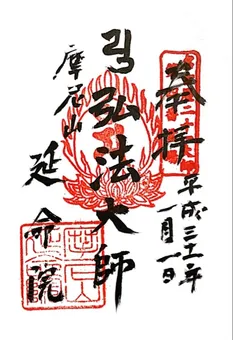 奉拝
平成三十一年
一月一日
弘法大師
摩尼山
延命院